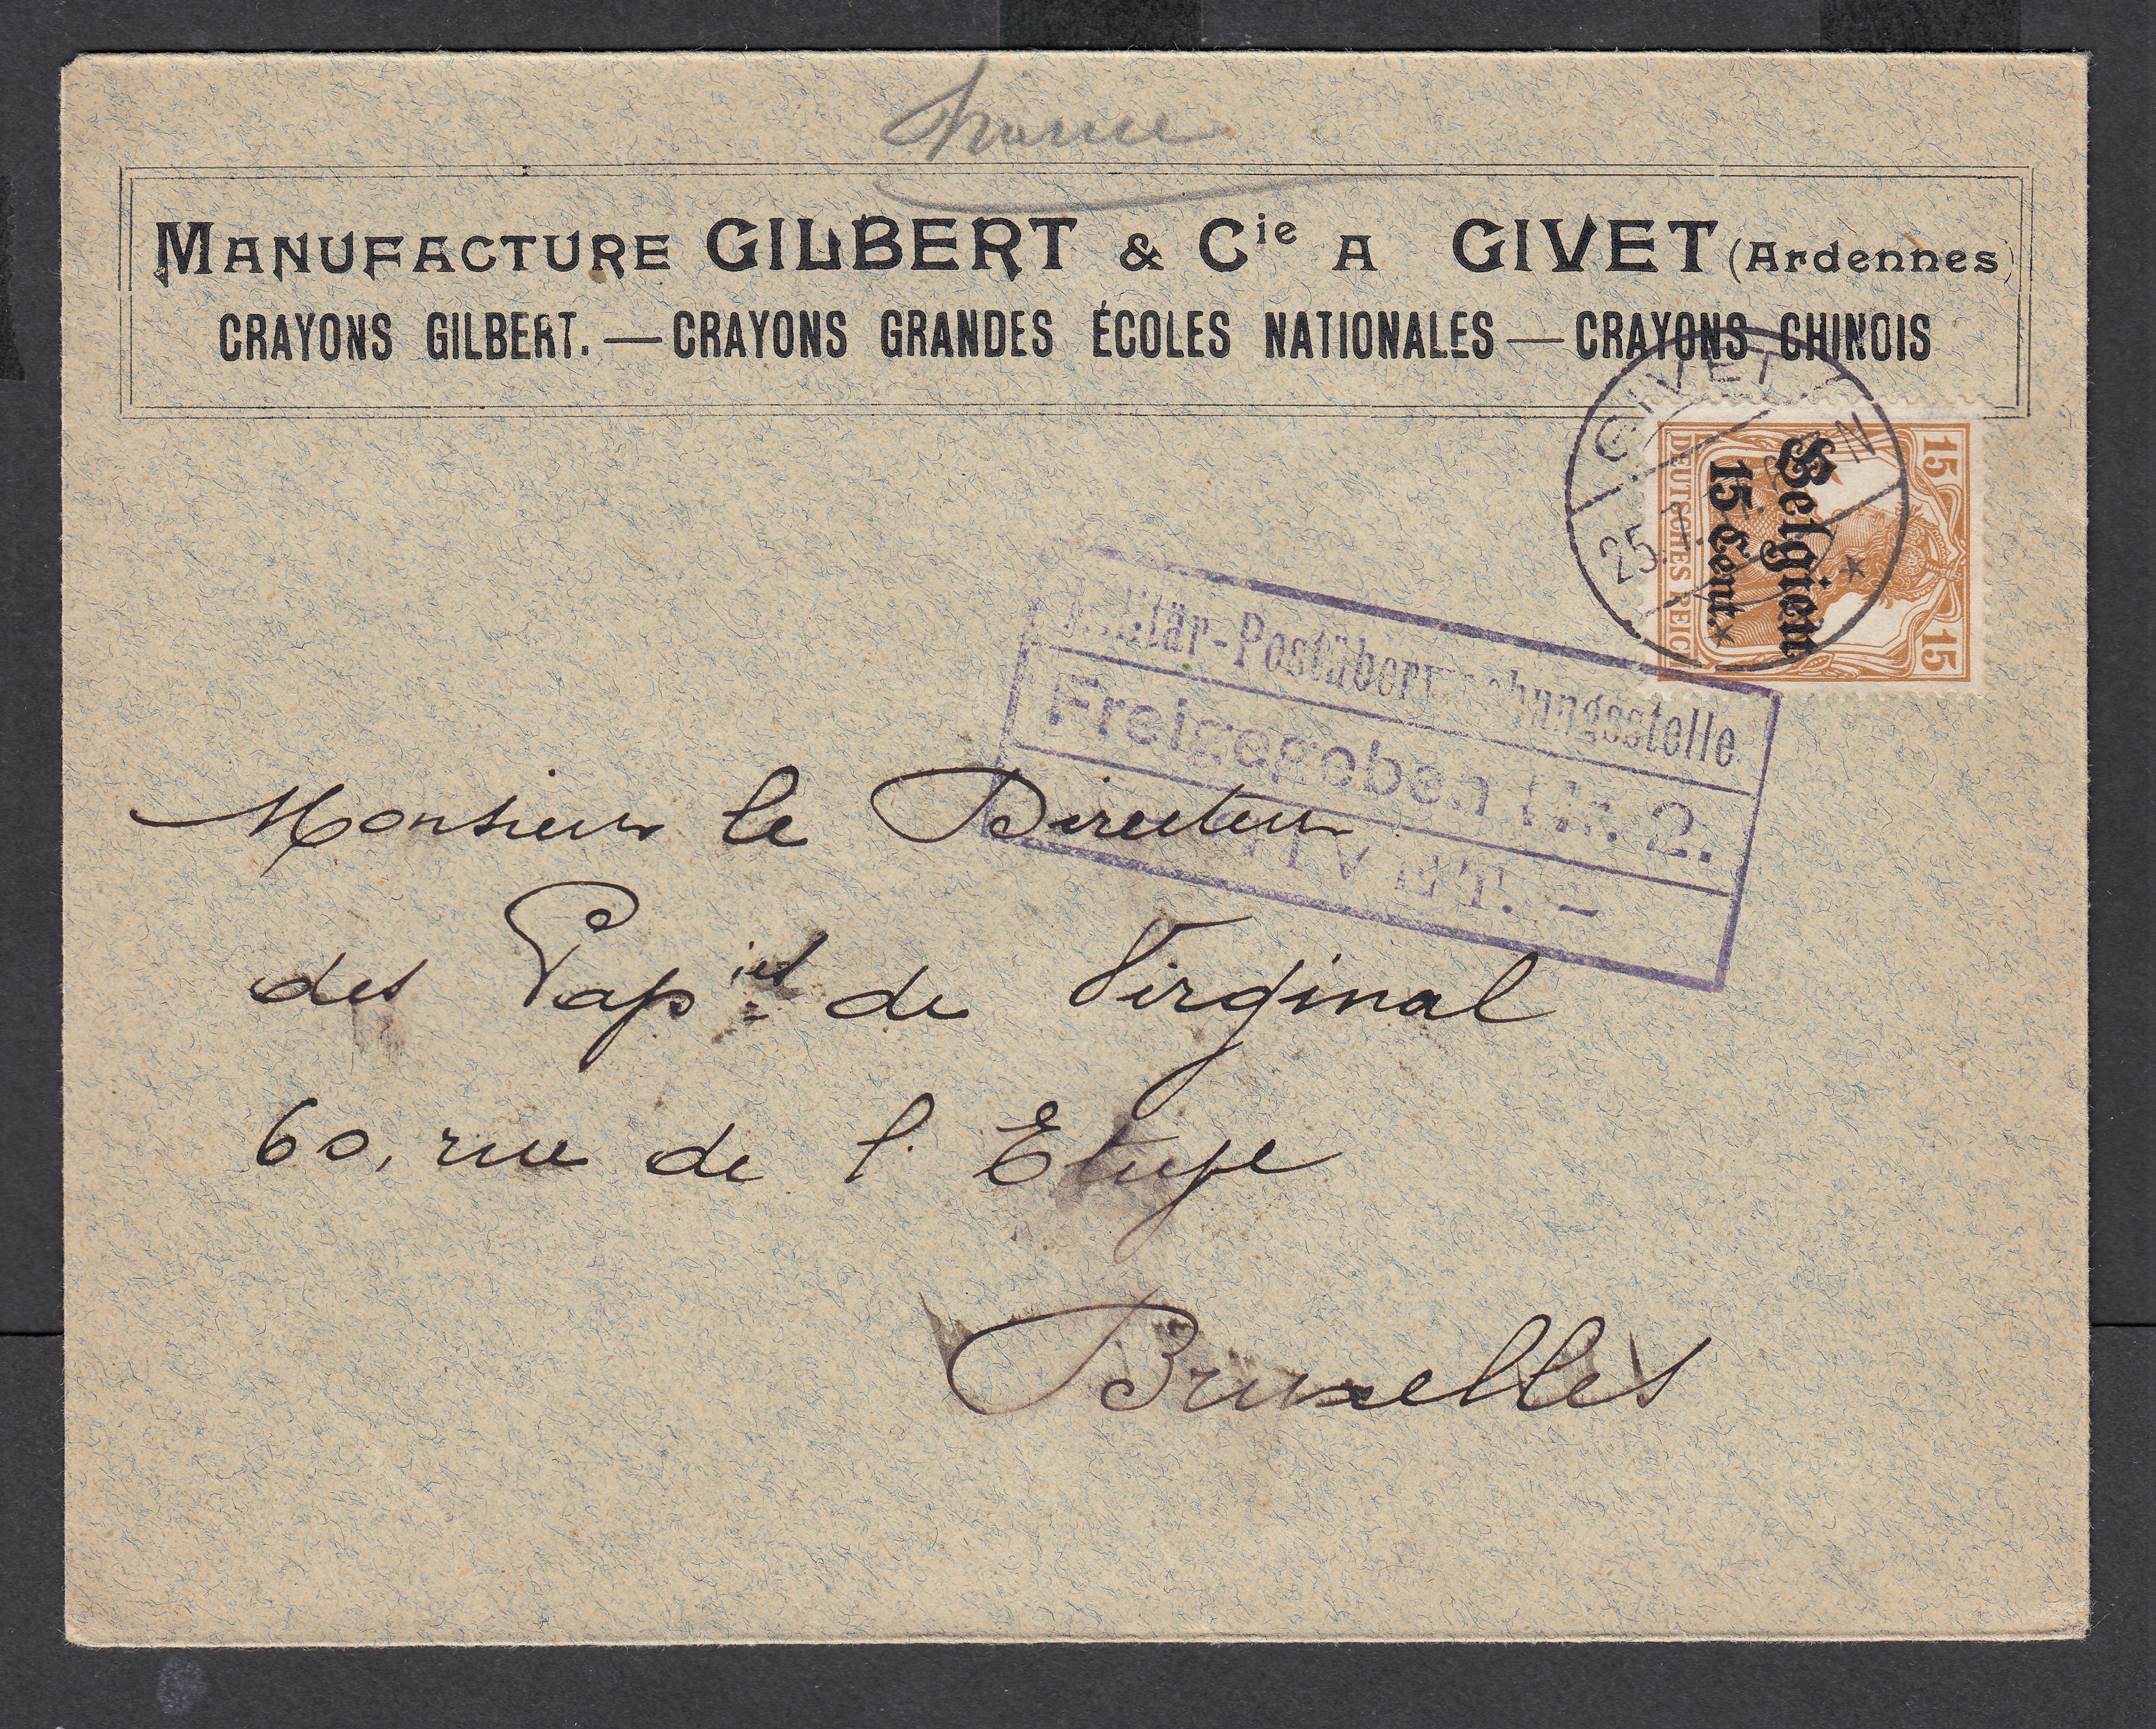 France
MANUFACTURE GILBERT & Cie A GIVET (Ardennes)
CRAYONS GILBERT. — CRAYONS GRANDES ÉCOLES NATIONALES — CRAYONS CHINOIS
GIVET
25.
15 15
DEUTSCHES REICH
Belgien
15 Cent.
Militär-Postüberwachungsstelle
Freigegeben Nr. 2.
GIVET. –
Monsieur le Directeur
des Papies de Virginal
60, rue de l'Etuve
Bruxelles